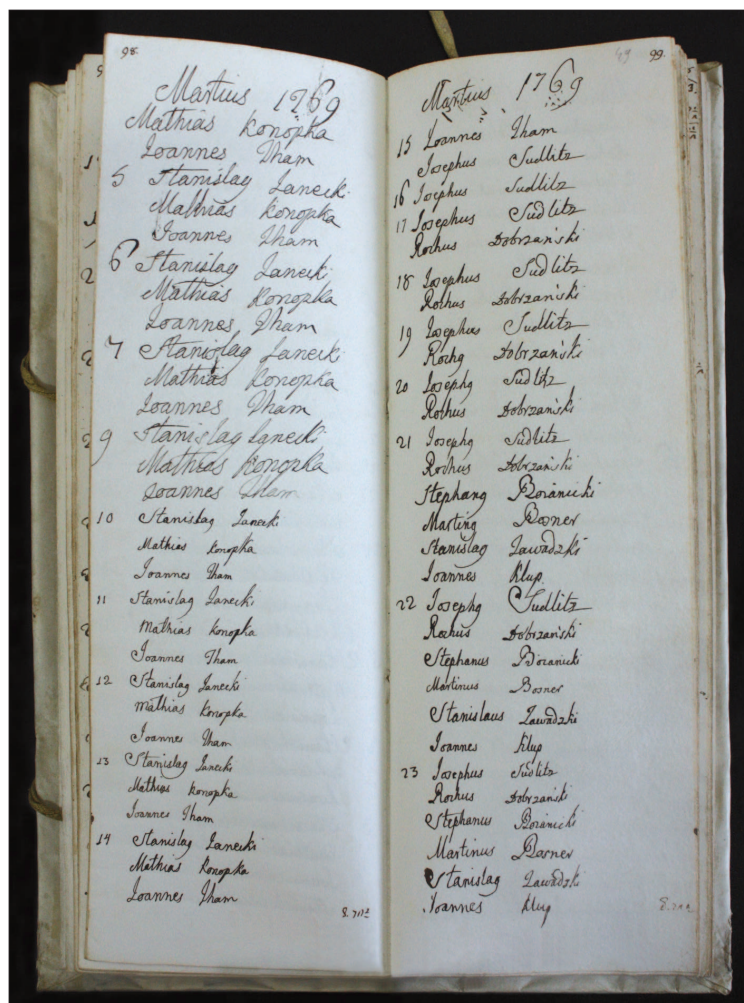 98.
Martius 1769
Mathias Konopka
Ioannes Tham
5 Stanislaꝯ Janecki
Mathias Konopka
Ioannes Tham
6 Stanislaꝯ Janecki
Mathias Konopka
Ioannes Tham
7 Stanislaꝯ Janecki
Mathias Konopka
Ioannes Tham
9 Stanislaꝯ Janecki
Mathias Konopka
Ioannes Tham
10 Stanislaꝯ Janecki
Mathias Konopka
Ioannes Tham
11 Stanislaꝯ Janecki
Mathias Konopka
Ioannes Tham
12 Stanislaꝯ Janecki
Mathias Konopka
Ioannes Tham
13 Stanislaꝯ Janecki
Mathias Konopka
Ioannes Tham
14 Stanislaꝯ Janecki
Mathias Konopka
Ioannes Tham
49 99.
Martius 1769
15 Ioannes Tham
Josephus Sudlitz
16 Josephus Sudlitz
17 Josephus Sudlitz
Rochus Dobrzański
18 Josephus Sudlitz
Rochus Dobrzański
19 Josephus Sudlitz
Rochꝯ Dobrzański
20 Josephꝯ Sudlitz
Rochus Dobrzański
21 Josephꝯ Sudlitz
Rochus Dobrzański
Stephanꝯ Boranicki
Martinꝯ Bosner
Stanislaꝯ Zawadzki
Ioannes Klup
22 Josephꝯ Sudlitz
Rochus Dobrzański
Stephanus Boranicki
Martinus Bosner
Stanislaus Zawadzki
Ioannes Klup
23 Josephus Sudlitz
Rochus Dobrzański
Stephanus Boranicki
Martinus Bosner
Stanislaꝯ Zawadzki
Ioannes Klup